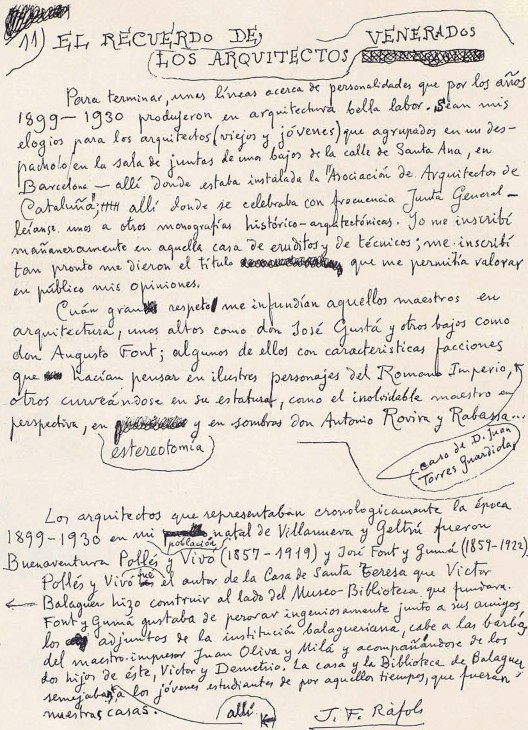 11) EL RECUERDO DE
LOS ARQUITECTOS VENERADOS
Para terminar, unas líneas acerca de personalidades que por los años
1899-1930 produjeron en arquitectura bella labor. Sean mis
elogios para los arquitectos (viejos y jóvenes) que agrupados en un des-
pacholo en la sala de juntas de unos bajos de la calle de Santa Ana, en
Barcelona - allí donde estaba instalada la "Asociación de Arquitectos de
Cataluña"; allí donde se celebraba con frecuencia Junta General-
leíanse unos a otros monografías histórico-arquitectónicas. Yo me inscribí
mañaneramente en aquella casa de eruditos y de técnicos; me inscribí
tan pronto me dieron el título que me permitía valorar
en público mis opiniones.
Cuán gran respeto me infundían aquellos maestros en
arquitectura, unos altos como don José Gustá y otros bajos como
don Augusto Font; algunos de ellos con características facciones
que hacían pensar en ilustres personajes del Romano Imperio,
otros curveándose en su estatura, como el inolvidable maestro en
perspectiva, en estereotomía y en sombras don Antonio Rovira y Rabassa...
caso de D. Juan
Torres Guardiola
Los arquitectos que representaban cronológicamente la época
1899-1930 en mi población natal de Villanueva y Geltrú fueron
Buenaventura Pollés y Vivó (1857-1919) y José Font y Gumá (1859-1922).
Pollés y Vivó fué el autor de la Casa de Santa Teresa que Victor
Balaguer hizo construir al lado del Museo-Biblioteca, que fundara.
Font y Gumá gustaba de perorar ingeniosamente junto a sus amigos
los adjuntos de la institución balagueriana, cabe a las barbas
del maestro-impresor Juan Oliva y Milá y acompañándose de los
dos hijos de éste, Victor y Demetrio. La casa y la Biblioteca de Balaguer
semejaban, a los jóvenes estudiantes de por aquellos tiempos, que fueran
nuestras casas. allí
J. F. Ráfols